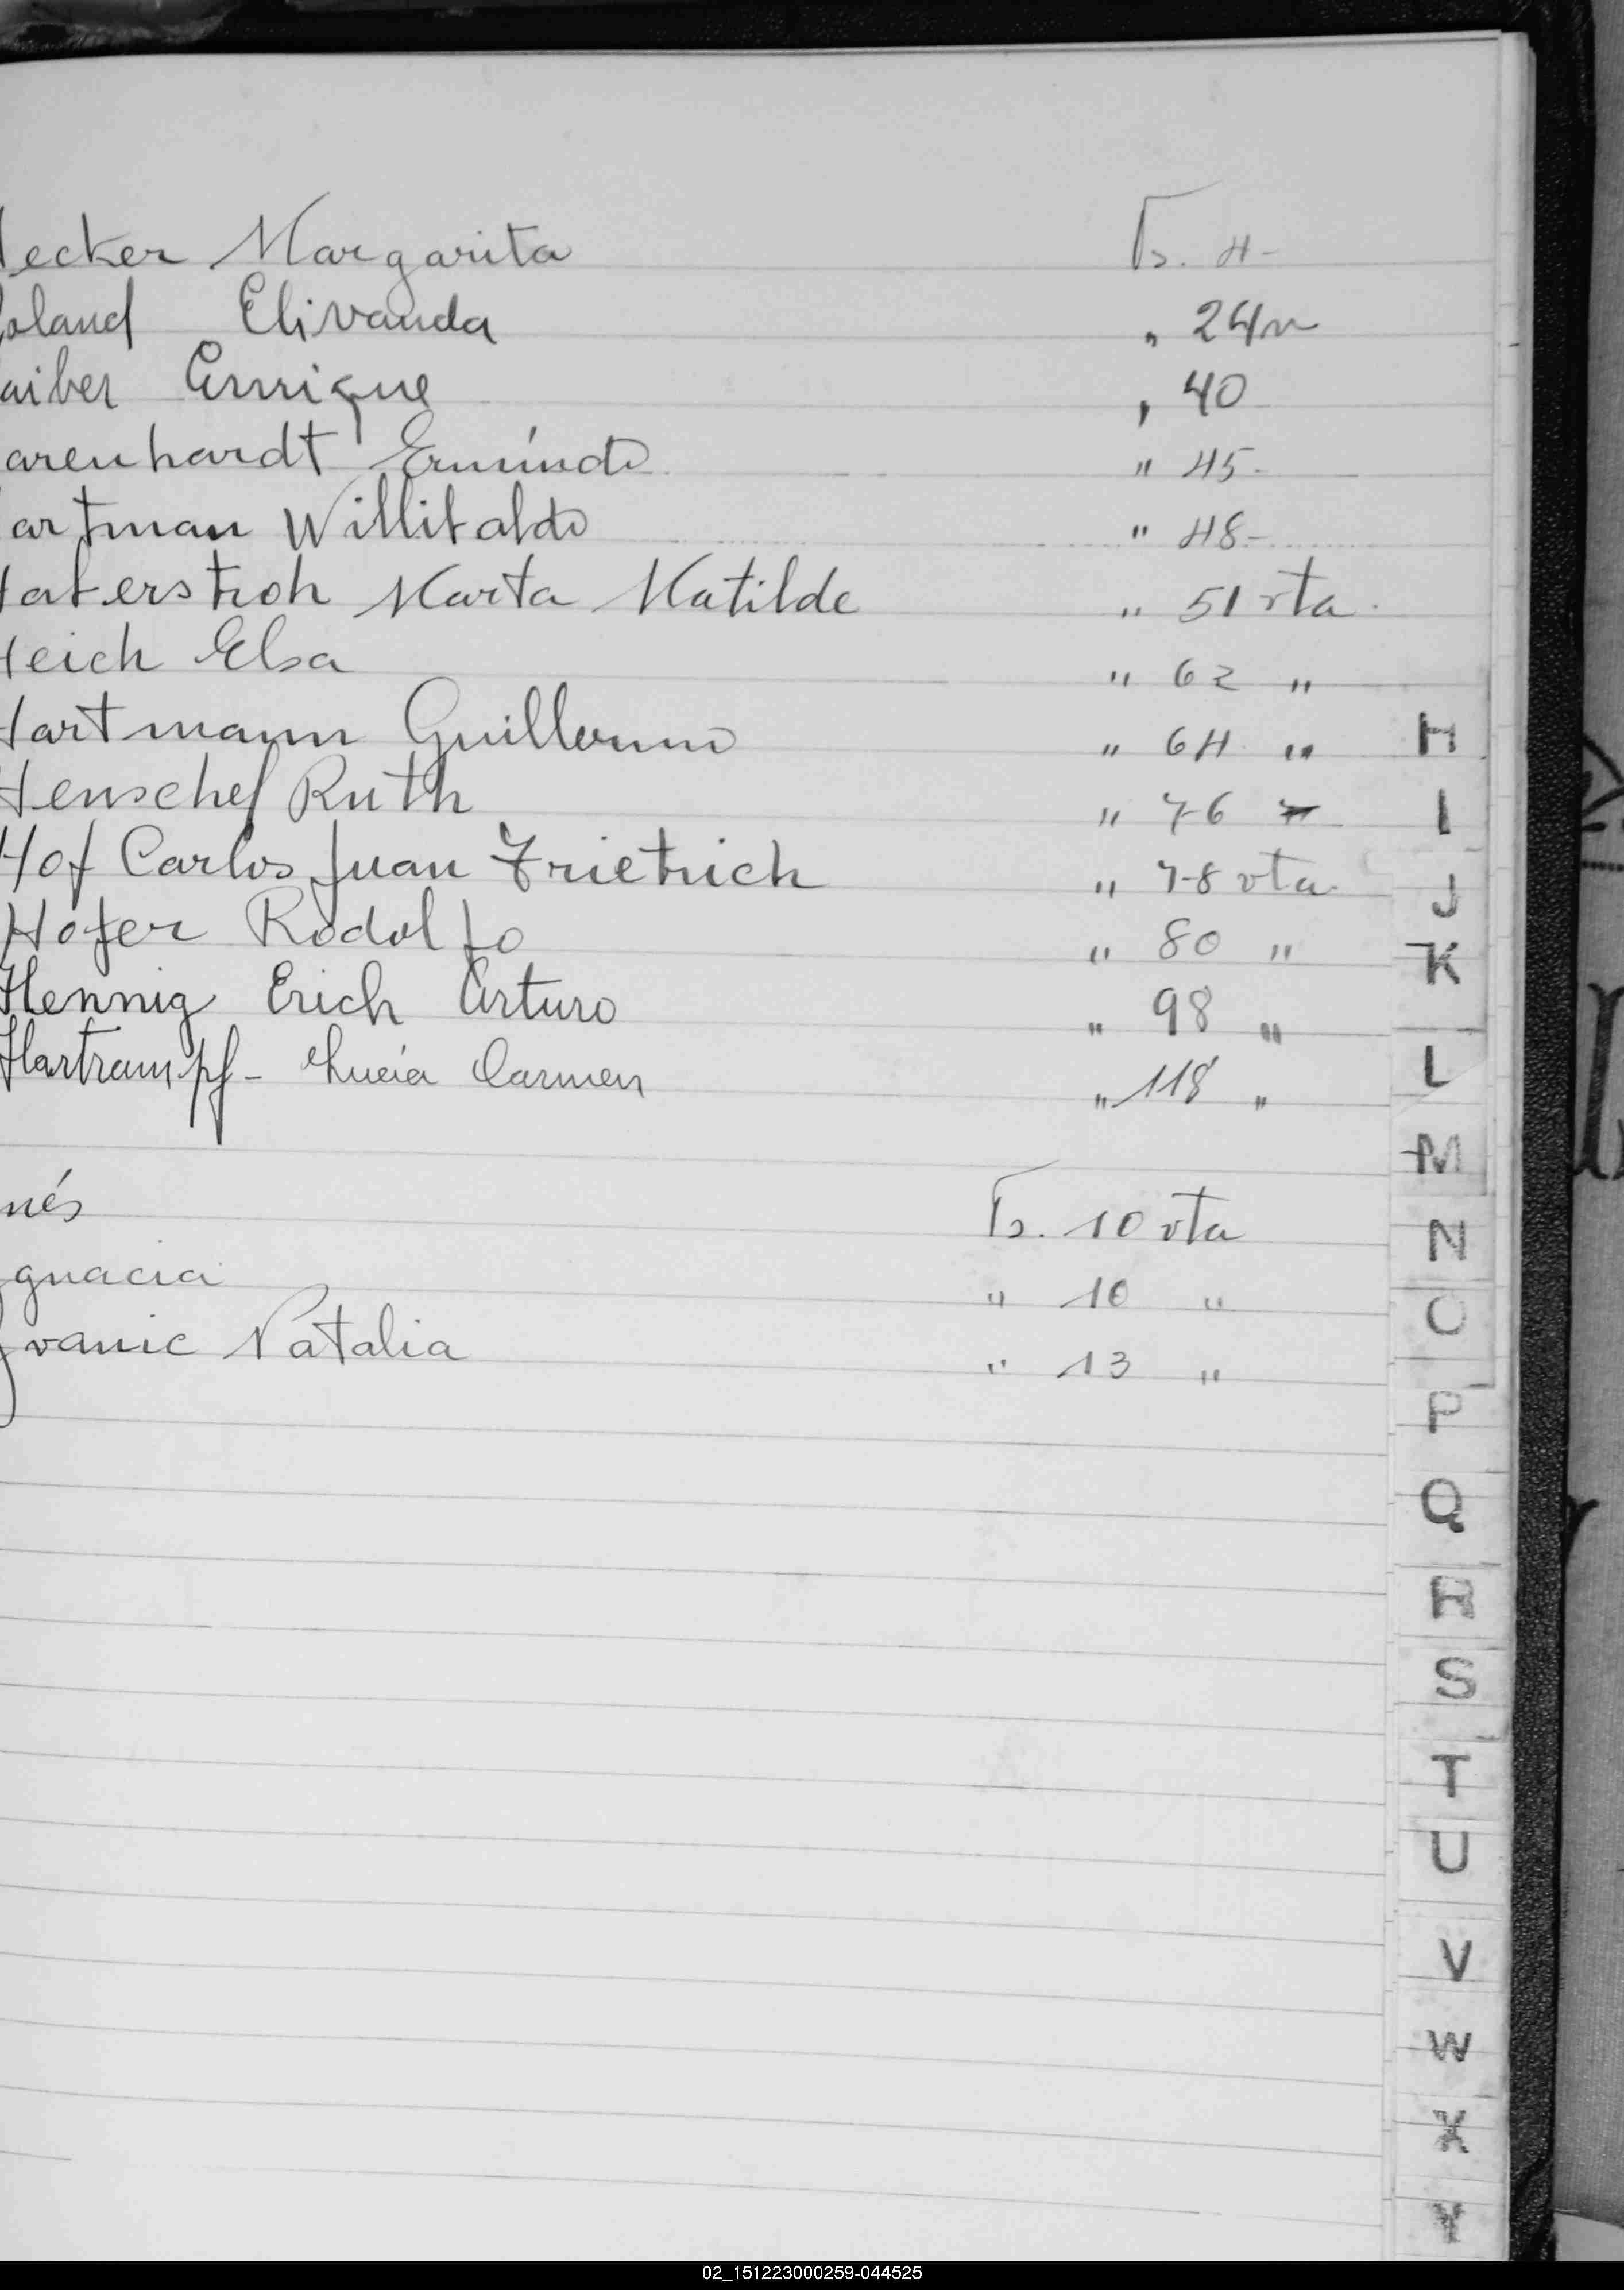 ecker Margarita Fs. 4-
oland Elivanda " 24 v
aiber Enrique " 40
arenhardt Ermindo " 45-
artman Willibaldo " 48-
Haberstroh Marta Matilde " 51 vta.
Heich Elsa " 62 "
Hartmann Guillermo " 64 "
Henschel Ruth " 76 "
Hof Carlos Juan Frietrich " 78 vta.
Hofer Rodolfo " 80 "
Hennig Erich Arturo " 98 "
Hartrampf - Lucia Carmen " 118 "
nés Fs. 10 vta
gnacia " 10 "
vanic Natalia " 13 "
H
I
J
K
L
M
N
O
P
Q
R
S
T
U
V
W
X
Y
02_151223000259-044525